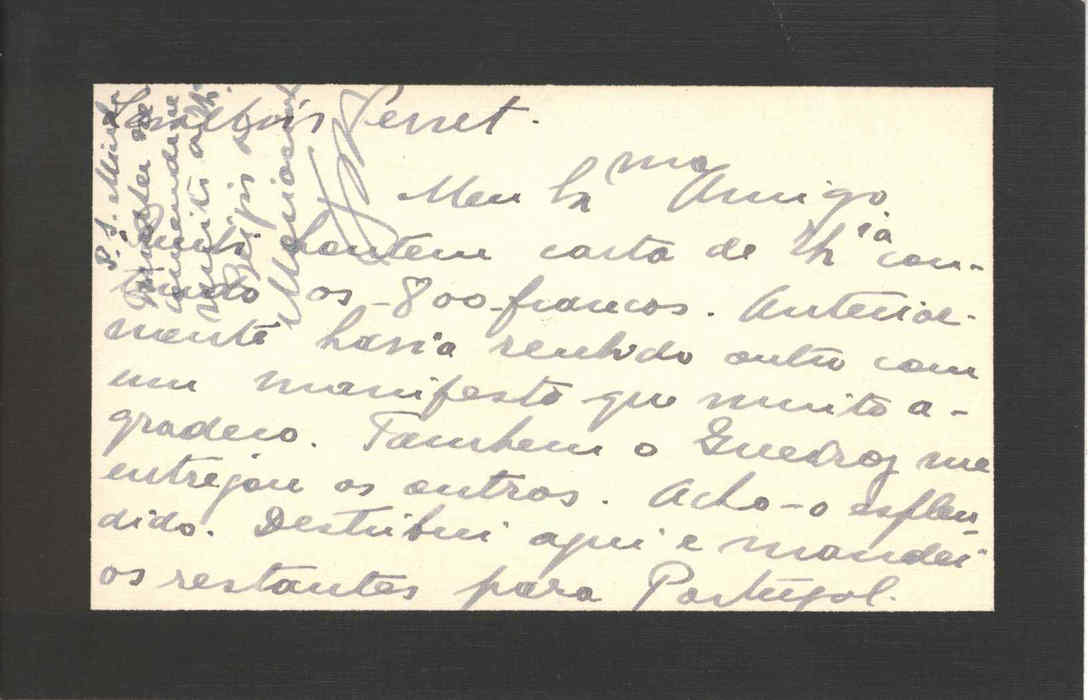 Perret.
Meu Amigo
hontem carta de V. Exª con-
tendo os 800 francos. Anterior-
mente havia recebido outro com
um manifesto que muito a-
gradeco. Tambem o Guedes me
entregou os outros. Acho-o esplen
dido. Destribui aqui e mandei
os restantes para Portugal.
P. S. Minha